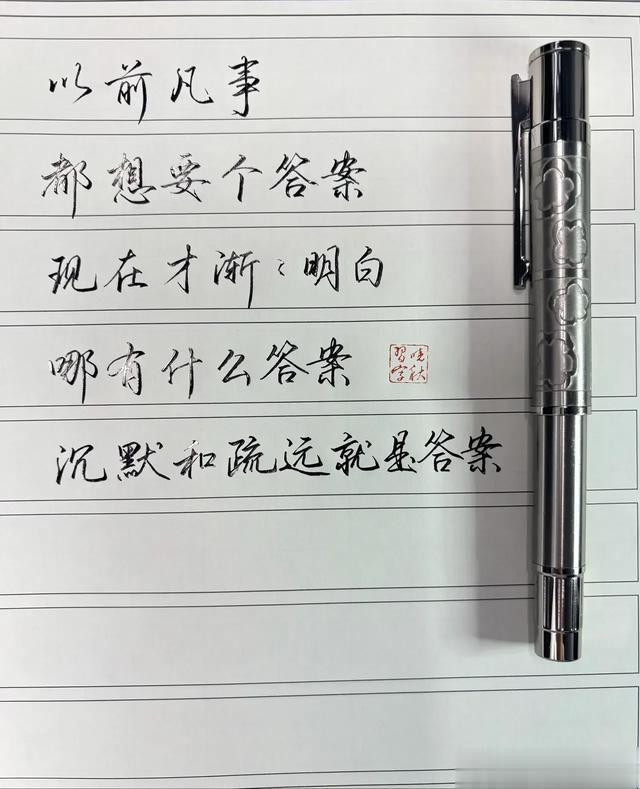 以前凡事
都想要个答案
现在才渐渐明白
哪有什么答案
晓秋習字
沉默和疏远就是答案